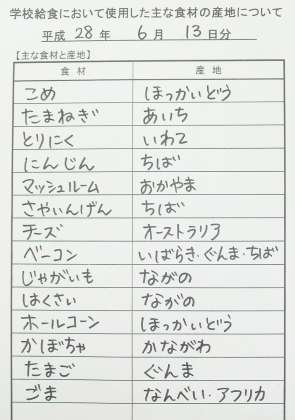 学校給食において使用した主な食材の産地について
平成 28 年 6 月 13 日分
【主な食材と産地】
食材 産地
こめ ほっかいどう
たまねぎ あいち
とりにく いわて
にんじん ちば
マッシュルーム おかやま
さやいんげん ちば
チーズ オーストラリア
ベーコン いばらき・ぐんま・ちば
じゃがいも ながの
はくさい ながの
ホールコーン ほっかいどう
かぼちゃ かながわ
たまご ぐんま
ごま なんべい・アフリカ